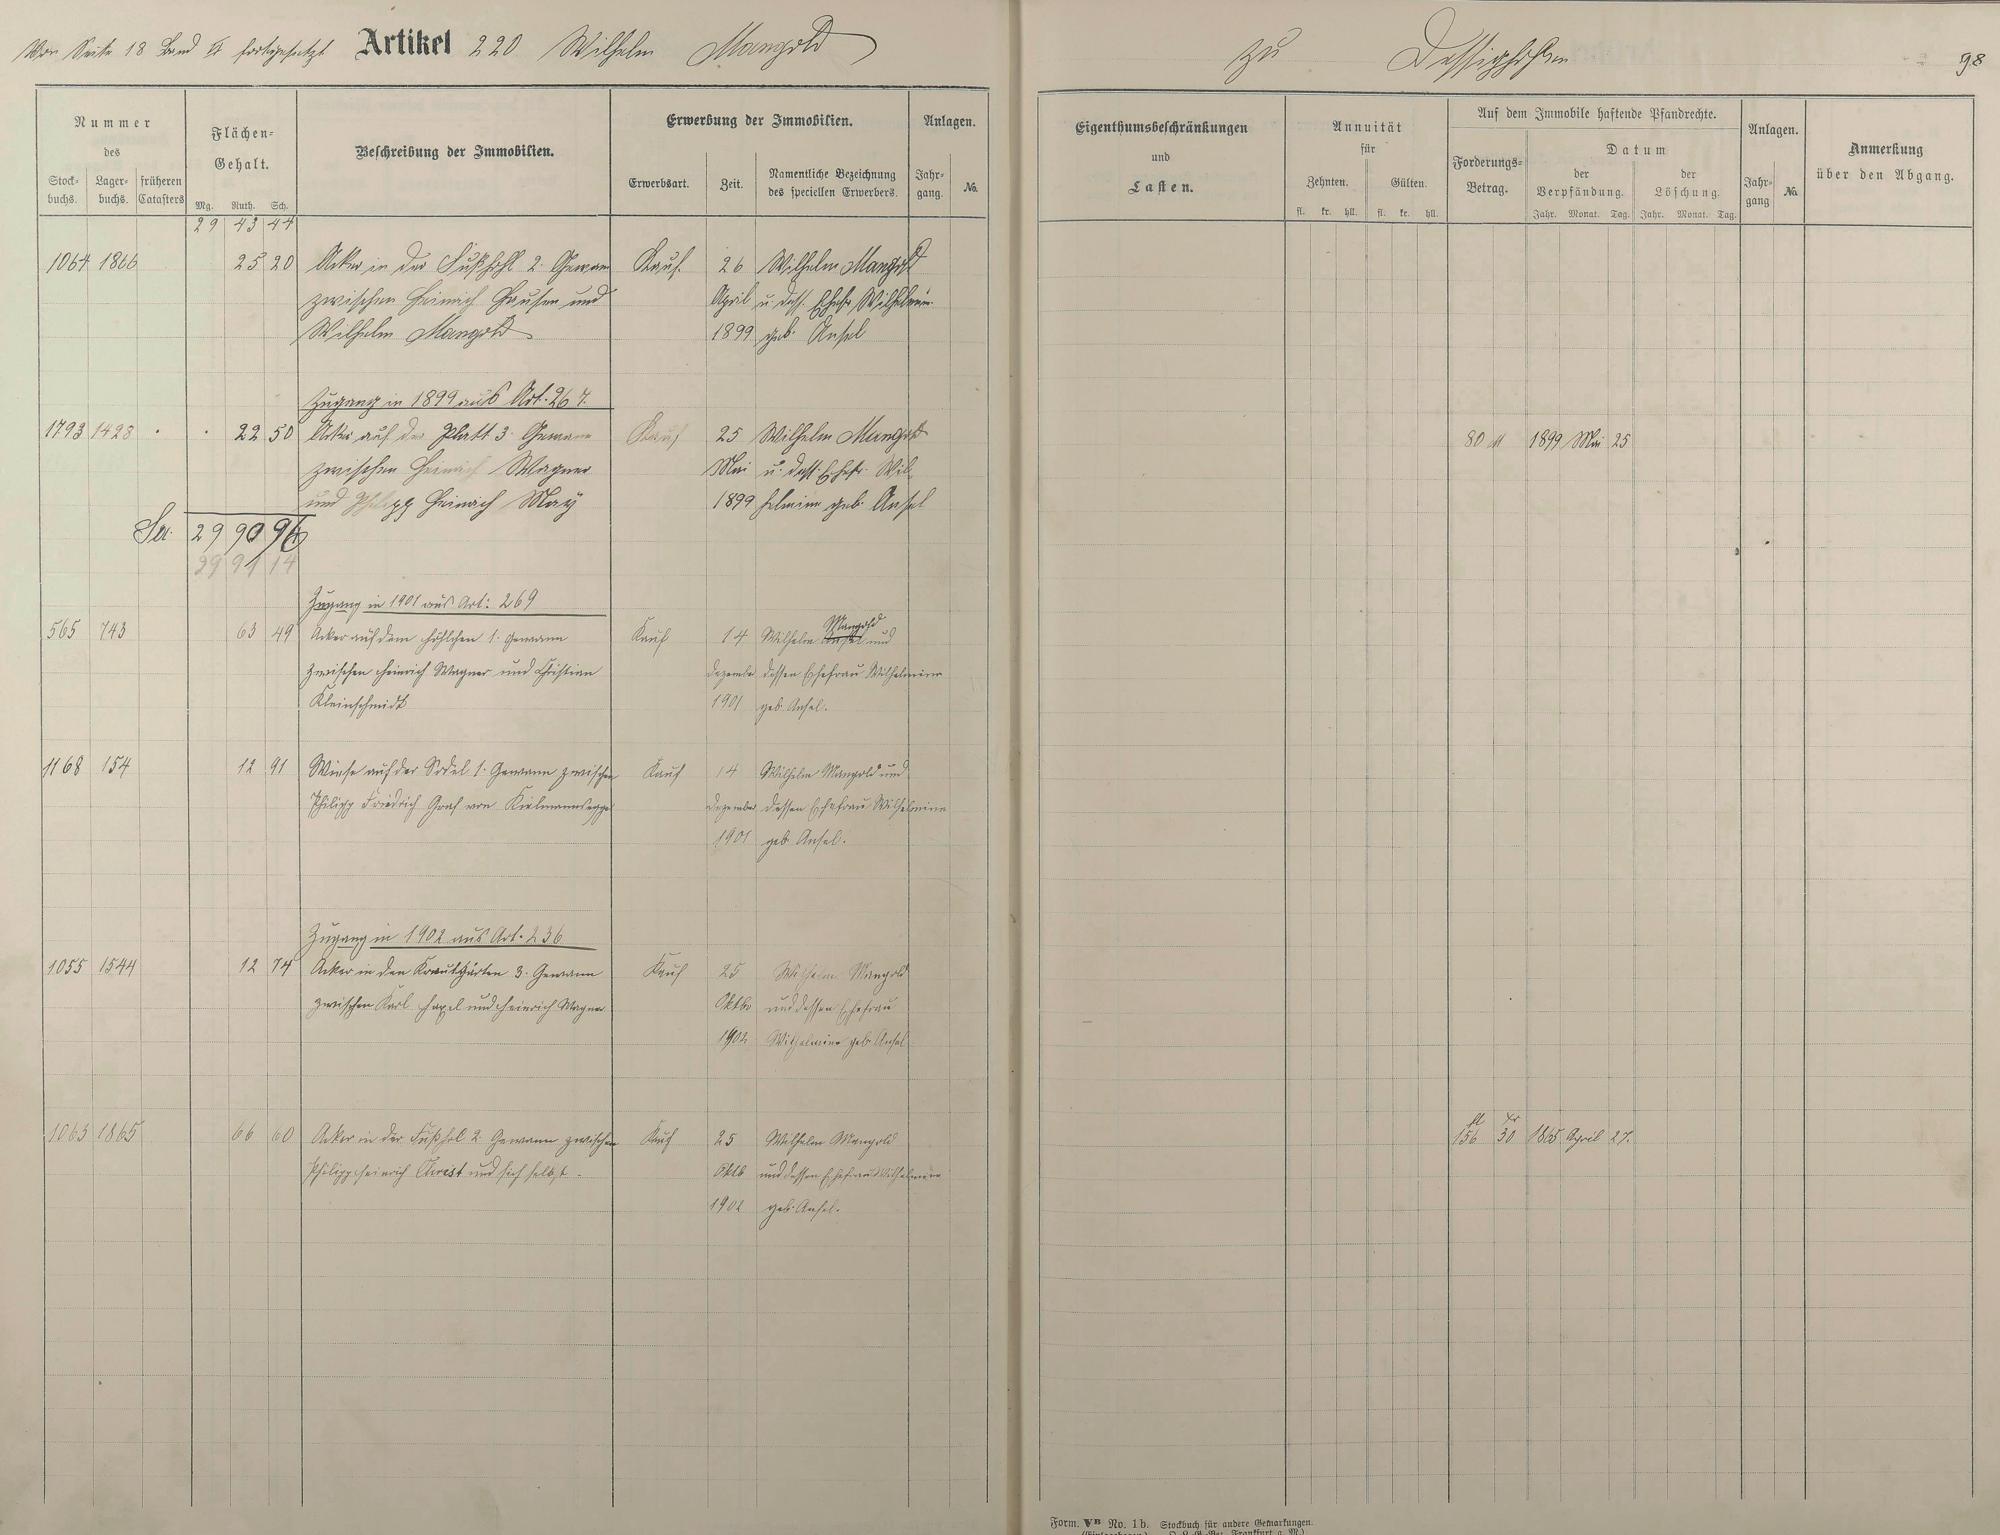 Von Seite 18 Band II fortgesetzt Artikel 220 Wilhelm Mangold
zu Dessighofen 98
Nummer
des
Stock-
buchs. Lager-
buchs. früheren
Catasters
Flächen-
Gehalt.
Mg. Ruth. Sch.
Beschreibung der Immobilien.
Erwerbung der Immobilien.
Erwerbsart. Zeit. Namentliche Bezeichnung
des speciellen Erwerbers.
Anlagen.
Jahr-
gang. No.
Eigenthumsbeschränkungen
und
Lasten.
Annuität
für
Zehnten. Gülten.
fl. kr. hll. fl. kr. hll.
Auf dem Immobile haftende Pfandrechte.
Forderungs-
Betrag.
Datum
der
Verpfändung. der
Löschung.
Jahr. Monat. Tag. Jahr. Monat. Tag.
Anlagen.
Jahr-
gang No.
Anmerkung
über den Abgang.
29 43 44
1064 1866 25 20 Acker in der Fußhohl 2. Gewann Kauf. 26 Wilhelm Mangold
zwischen Heinrich und April u. dess. Ehefr. Wilhelmin.
Wilhelm Mangold 1899 geb. Ansel
Zugang in 1899 aus Art. 267.
1793 1428 22 50 Acker auf der Platt 3. Gewann Kauf 25 Wilhelm Mangold 80 M 1899 Mai 25
zwischen Heinrich Wagner Mai u. dess. Ehefr. Wil-
und Philipp Heinrich May 1899 helmine geb. Ansel
Sa. 29 90 96
29 91 14
Zugang in 1901 aus Art. 269
565 743 63 49 Acker auf dem Höhlchen 1. Gewann Kauf 14 Wilhelm Mangold und
zwischen Heinrich Wagner und Christian Dezembe dessen Ehefrau Wilhelmine
Kleinschmidt 1901 geb. Ansel.
1168 154 12 91 Wiese auf der Sodel 1. Gewann zwischen Kauf 14 Wilhelm Mangold und
Philipp Friedrich Graf von Kielmannsegge Dezember dessen Ehefrau Wilhelmine
1901 geb. Ansel.
Zugang in 1902 aus Art. 236
1055 1544 12 74 Acker in den Krautgärten 3. Gewann Kauf 25 Wilhelm Mangold
zwischen Karl und Heinrich Wagner Oktbr und dessen Ehefrau
1902 Wilhelmine geb. Ansel
1063 1865 66 60 Acker in der Fußhol 2. Gewann zwischen Kauf 25 Wilhelm Mangold fl 156 kr 30 1865 April 27.
Philipp Heinrich Christ und sich selbst. Oktb und dessen Ehefrau Wilhelmine
1902 geb. Ansel.
Form. VB No. 1b. Stockbuch für andere Gemarkungen.